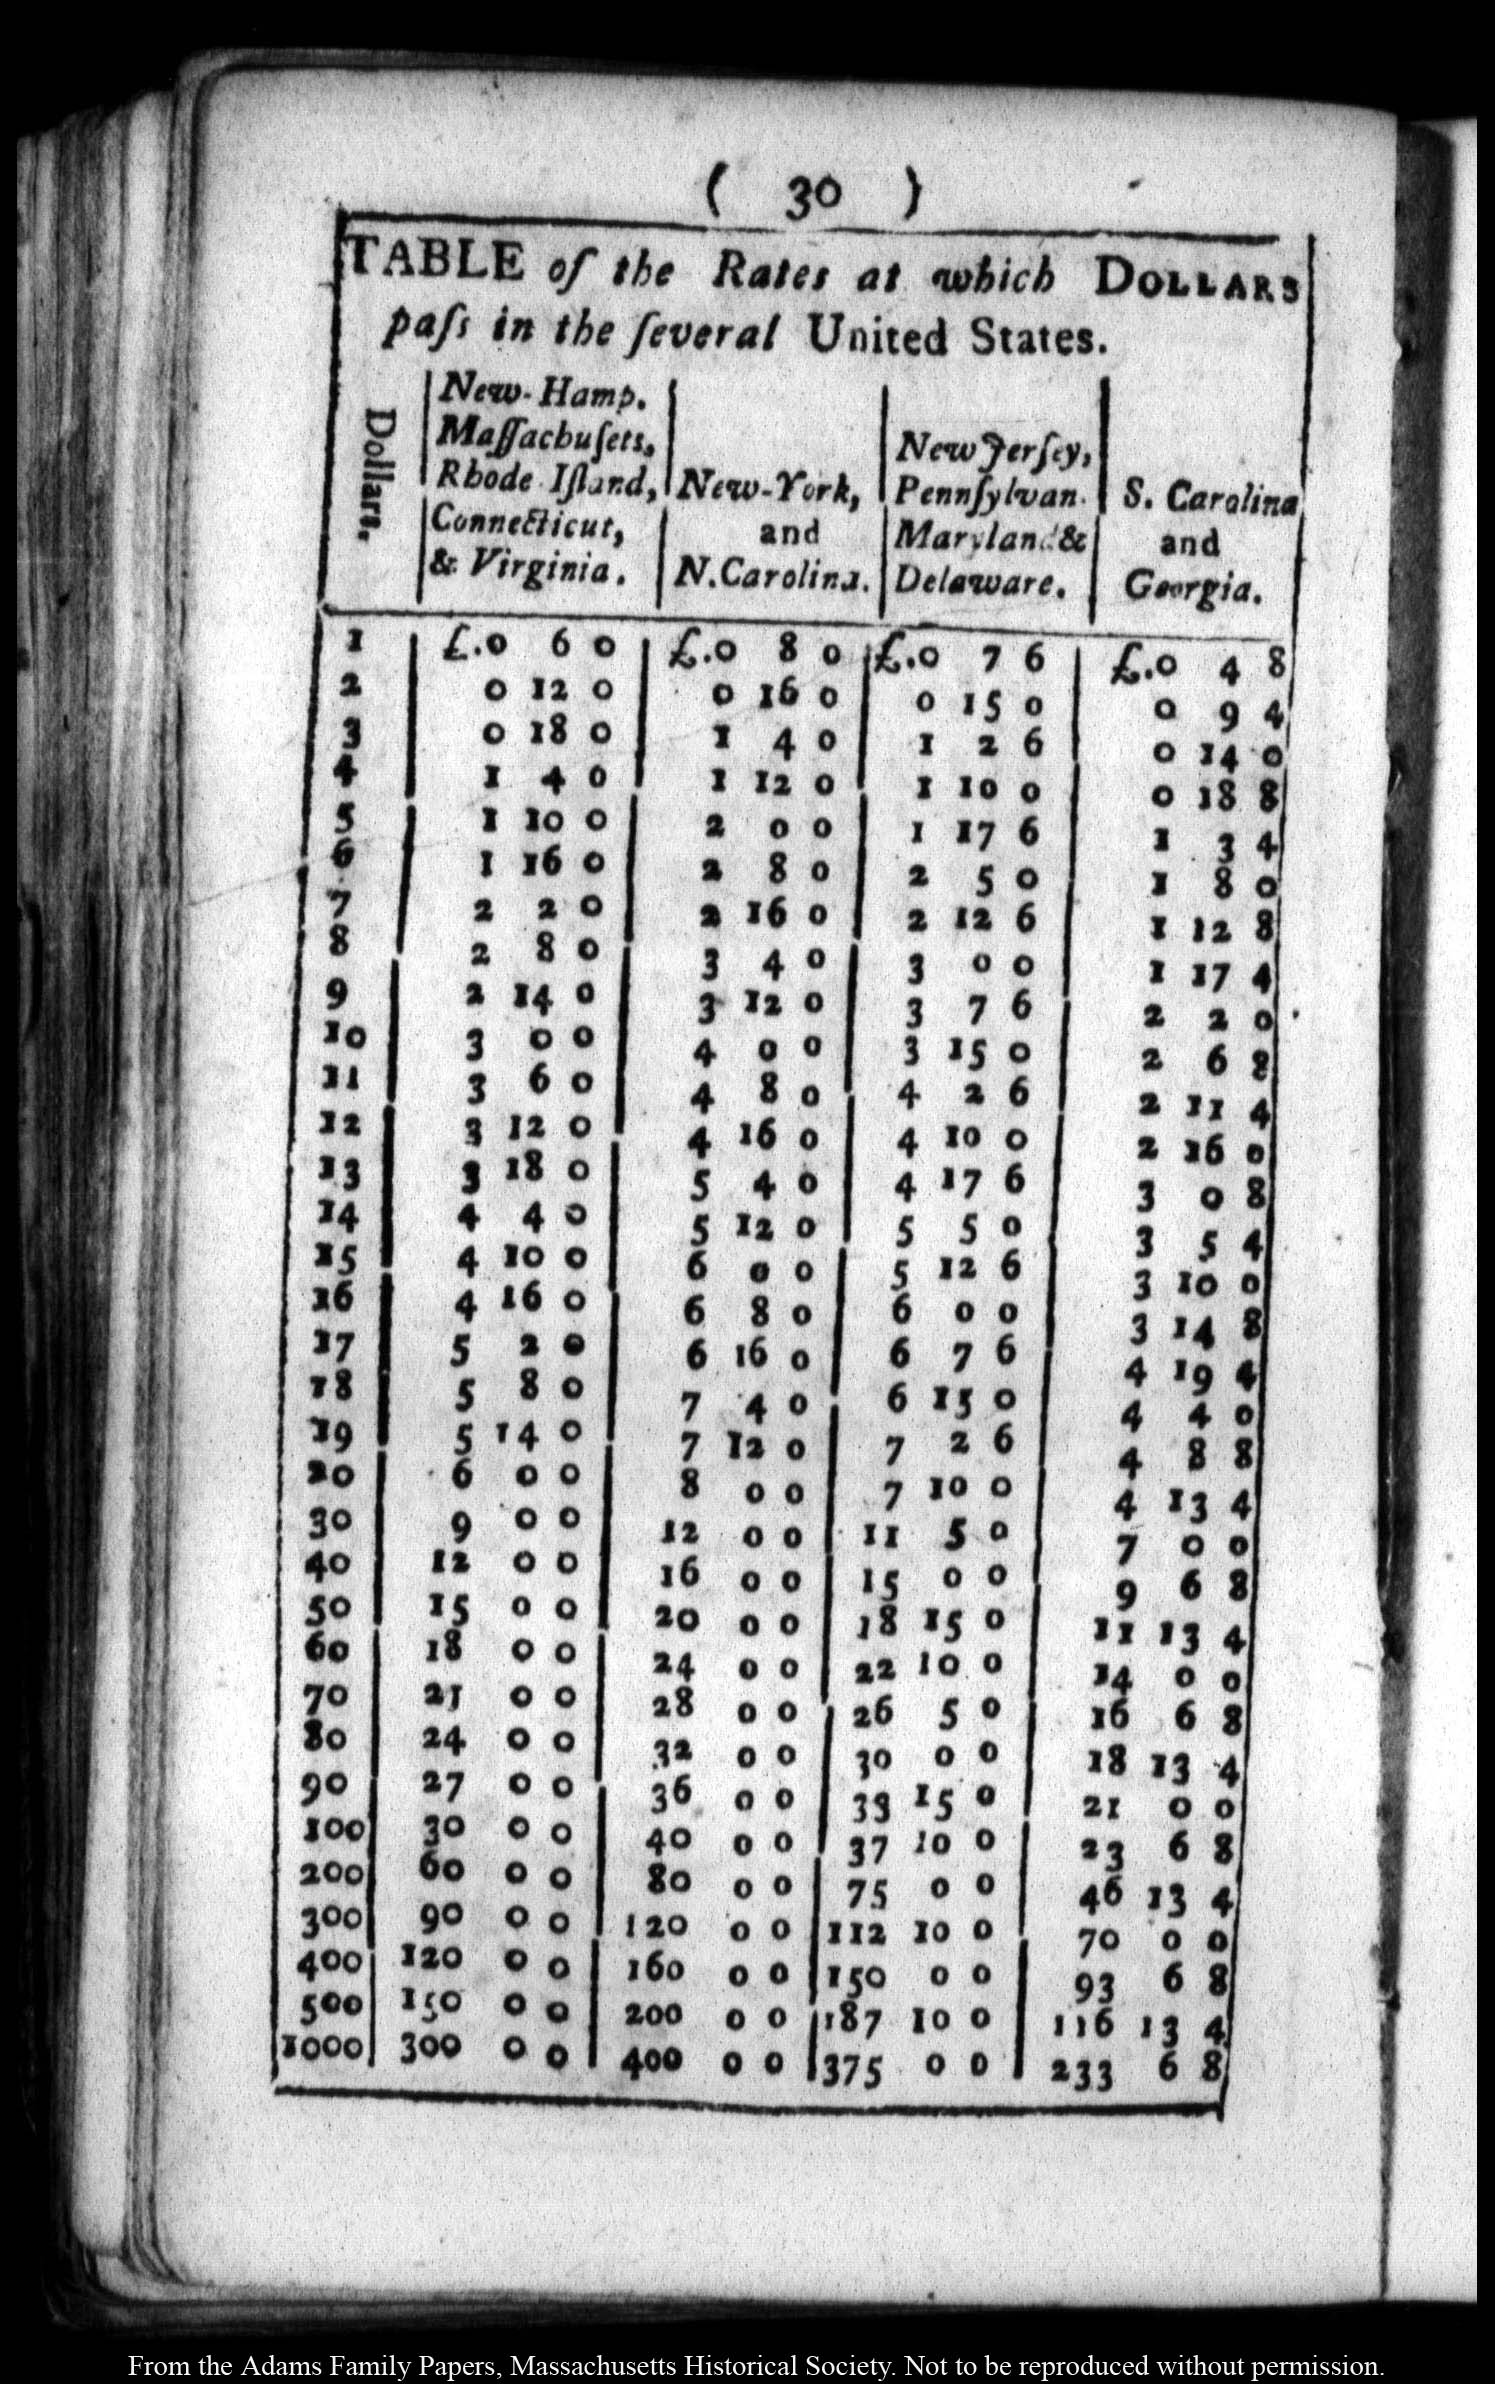 ( 30 )
TABLE of the Rates at which DOLLARS
paſs in the ſeveral United States.
Dollars.
New-Hamp.
Maſſachuſets,
Rhode Iſland,
Connecticut,
& Virginia.
New-York,
and
N.Carolina.
New Jerſey,
Pennſylvan.
Maryland &
Delaware.
S. Carolina
and
Georgia.
1 £.0 6 0 £.0 8 0 £.0 7 6 £.0 4 8
2 0 12 0 0 16 0 0 15 0 0 9 4
3 0 18 0 1 4 0 1 2 6 0 14 0
4 1 4 0 1 12 0 1 10 0 0 18 8
5 1 10 0 2 0 0 1 17 6 1 3 4
6 1 16 0 2 8 0 2 5 0 1 8 0
7 2 2 0 2 16 0 2 12 6 1 12 8
8 2 8 0 3 4 0 3 0 0 1 17 4
9 2 14 0 3 12 0 3 7 6 2 2 0
10 3 0 0 4 0 0 3 15 0 2 6 8
11 3 6 0 4 8 0 4 2 6 2 11 4
12 3 12 0 4 16 0 4 10 0 2 16 0
13 3 18 0 5 4 0 4 17 6 3 0 8
14 4 4 0 5 12 0 5 5 0 3 5 4
15 4 10 0 6 0 0 5 12 6 3 10 0
16 4 16 0 6 8 0 6 0 0 3 14 8
17 5 2 0 6 16 0 6 7 6 4 19 4
18 5 8 0 7 4 0 6 15 0 4 4 0
19 5 14 0 7 12 0 7 2 6 4 8 8
20 6 0 0 8 0 0 7 10 0 4 13 4
30 9 0 0 12 0 0 11 5 0 7 0 0
40 12 0 0 16 0 0 15 0 0 9 6 8
50 15 0 0 20 0 0 18 15 0 11 13 4
60 18 0 0 24 0 0 22 10 0 14 0 0
70 21 0 0 28 0 0 26 5 0 16 6 8
80 24 0 0 32 0 0 30 0 0 18 13 4
90 27 0 0 36 0 0 33 15 0 21 0 0
100 30 0 0 40 0 0 37 10 0 23 6 8
200 60 0 0 80 0 0 75 0 0 46 13 4
300 90 0 0 120 0 0 112 10 0 70 0 0
400 120 0 0 160 0 0 150 0 0 93 6 8
500 150 0 0 200 0 0 187 10 0 116 13 4
1000 300 0 0 400 0 0 375 0 0 233 6 8
From the Adams Family Papers, Massachusetts Historical Society. Not to be reproduced without permission.